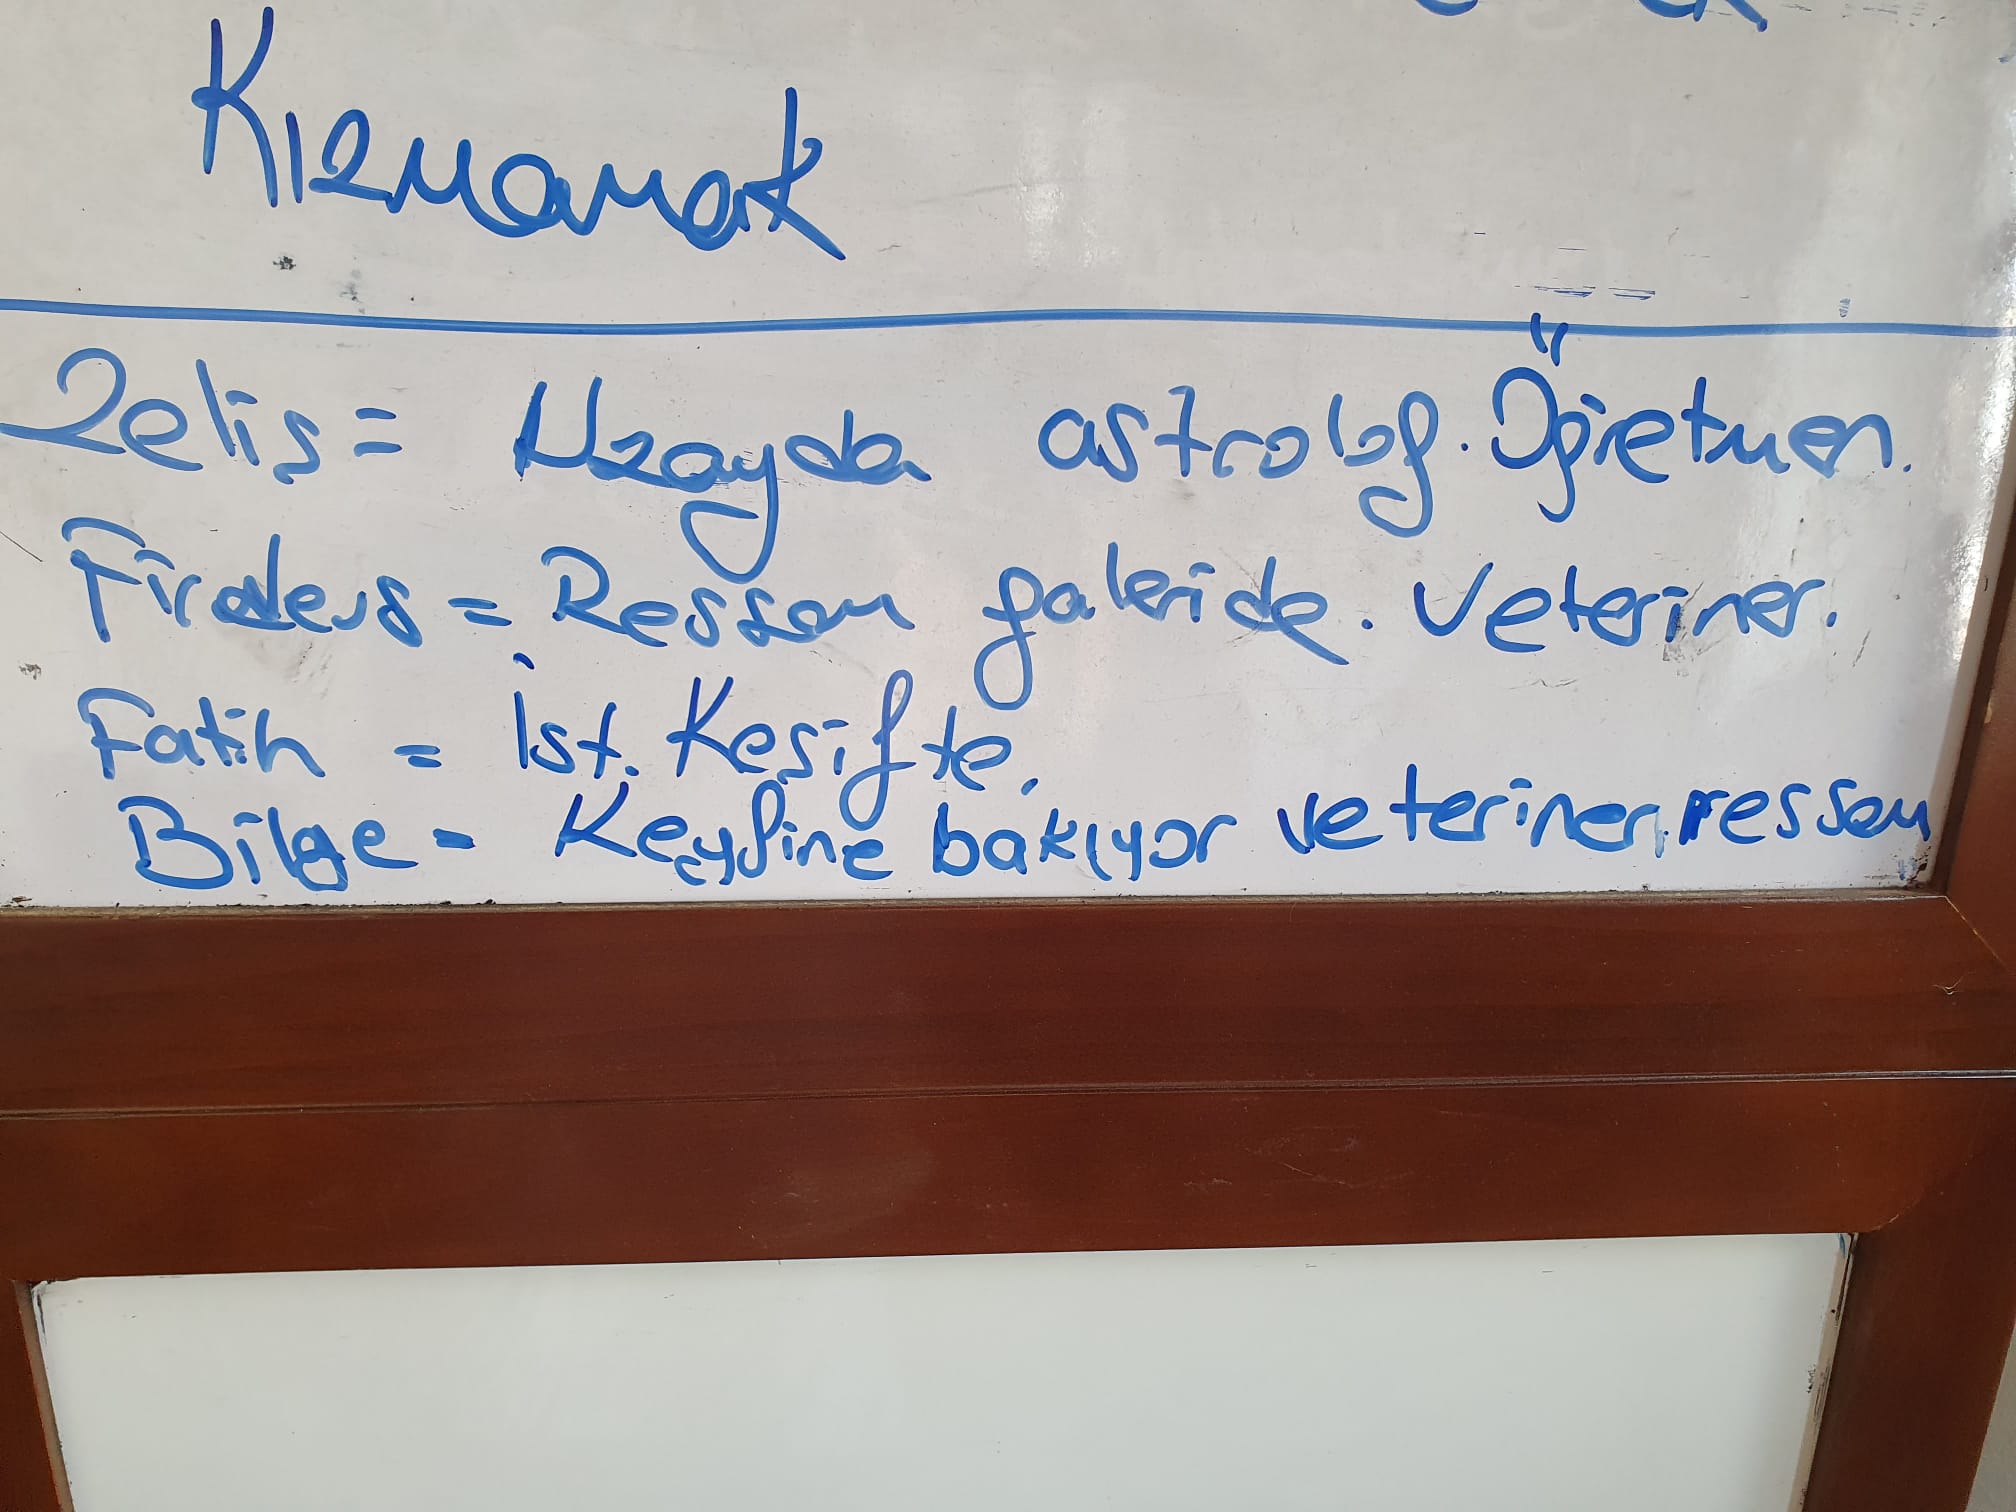 Kızmamak
Zeliş = Uzayda astrolog. Öğretmen.
Firdevs = Ressam galeride. Veteriner.
Fatih = İst. Keşifte.
Bilge = Keyfine bakıyor veteriner, ressam